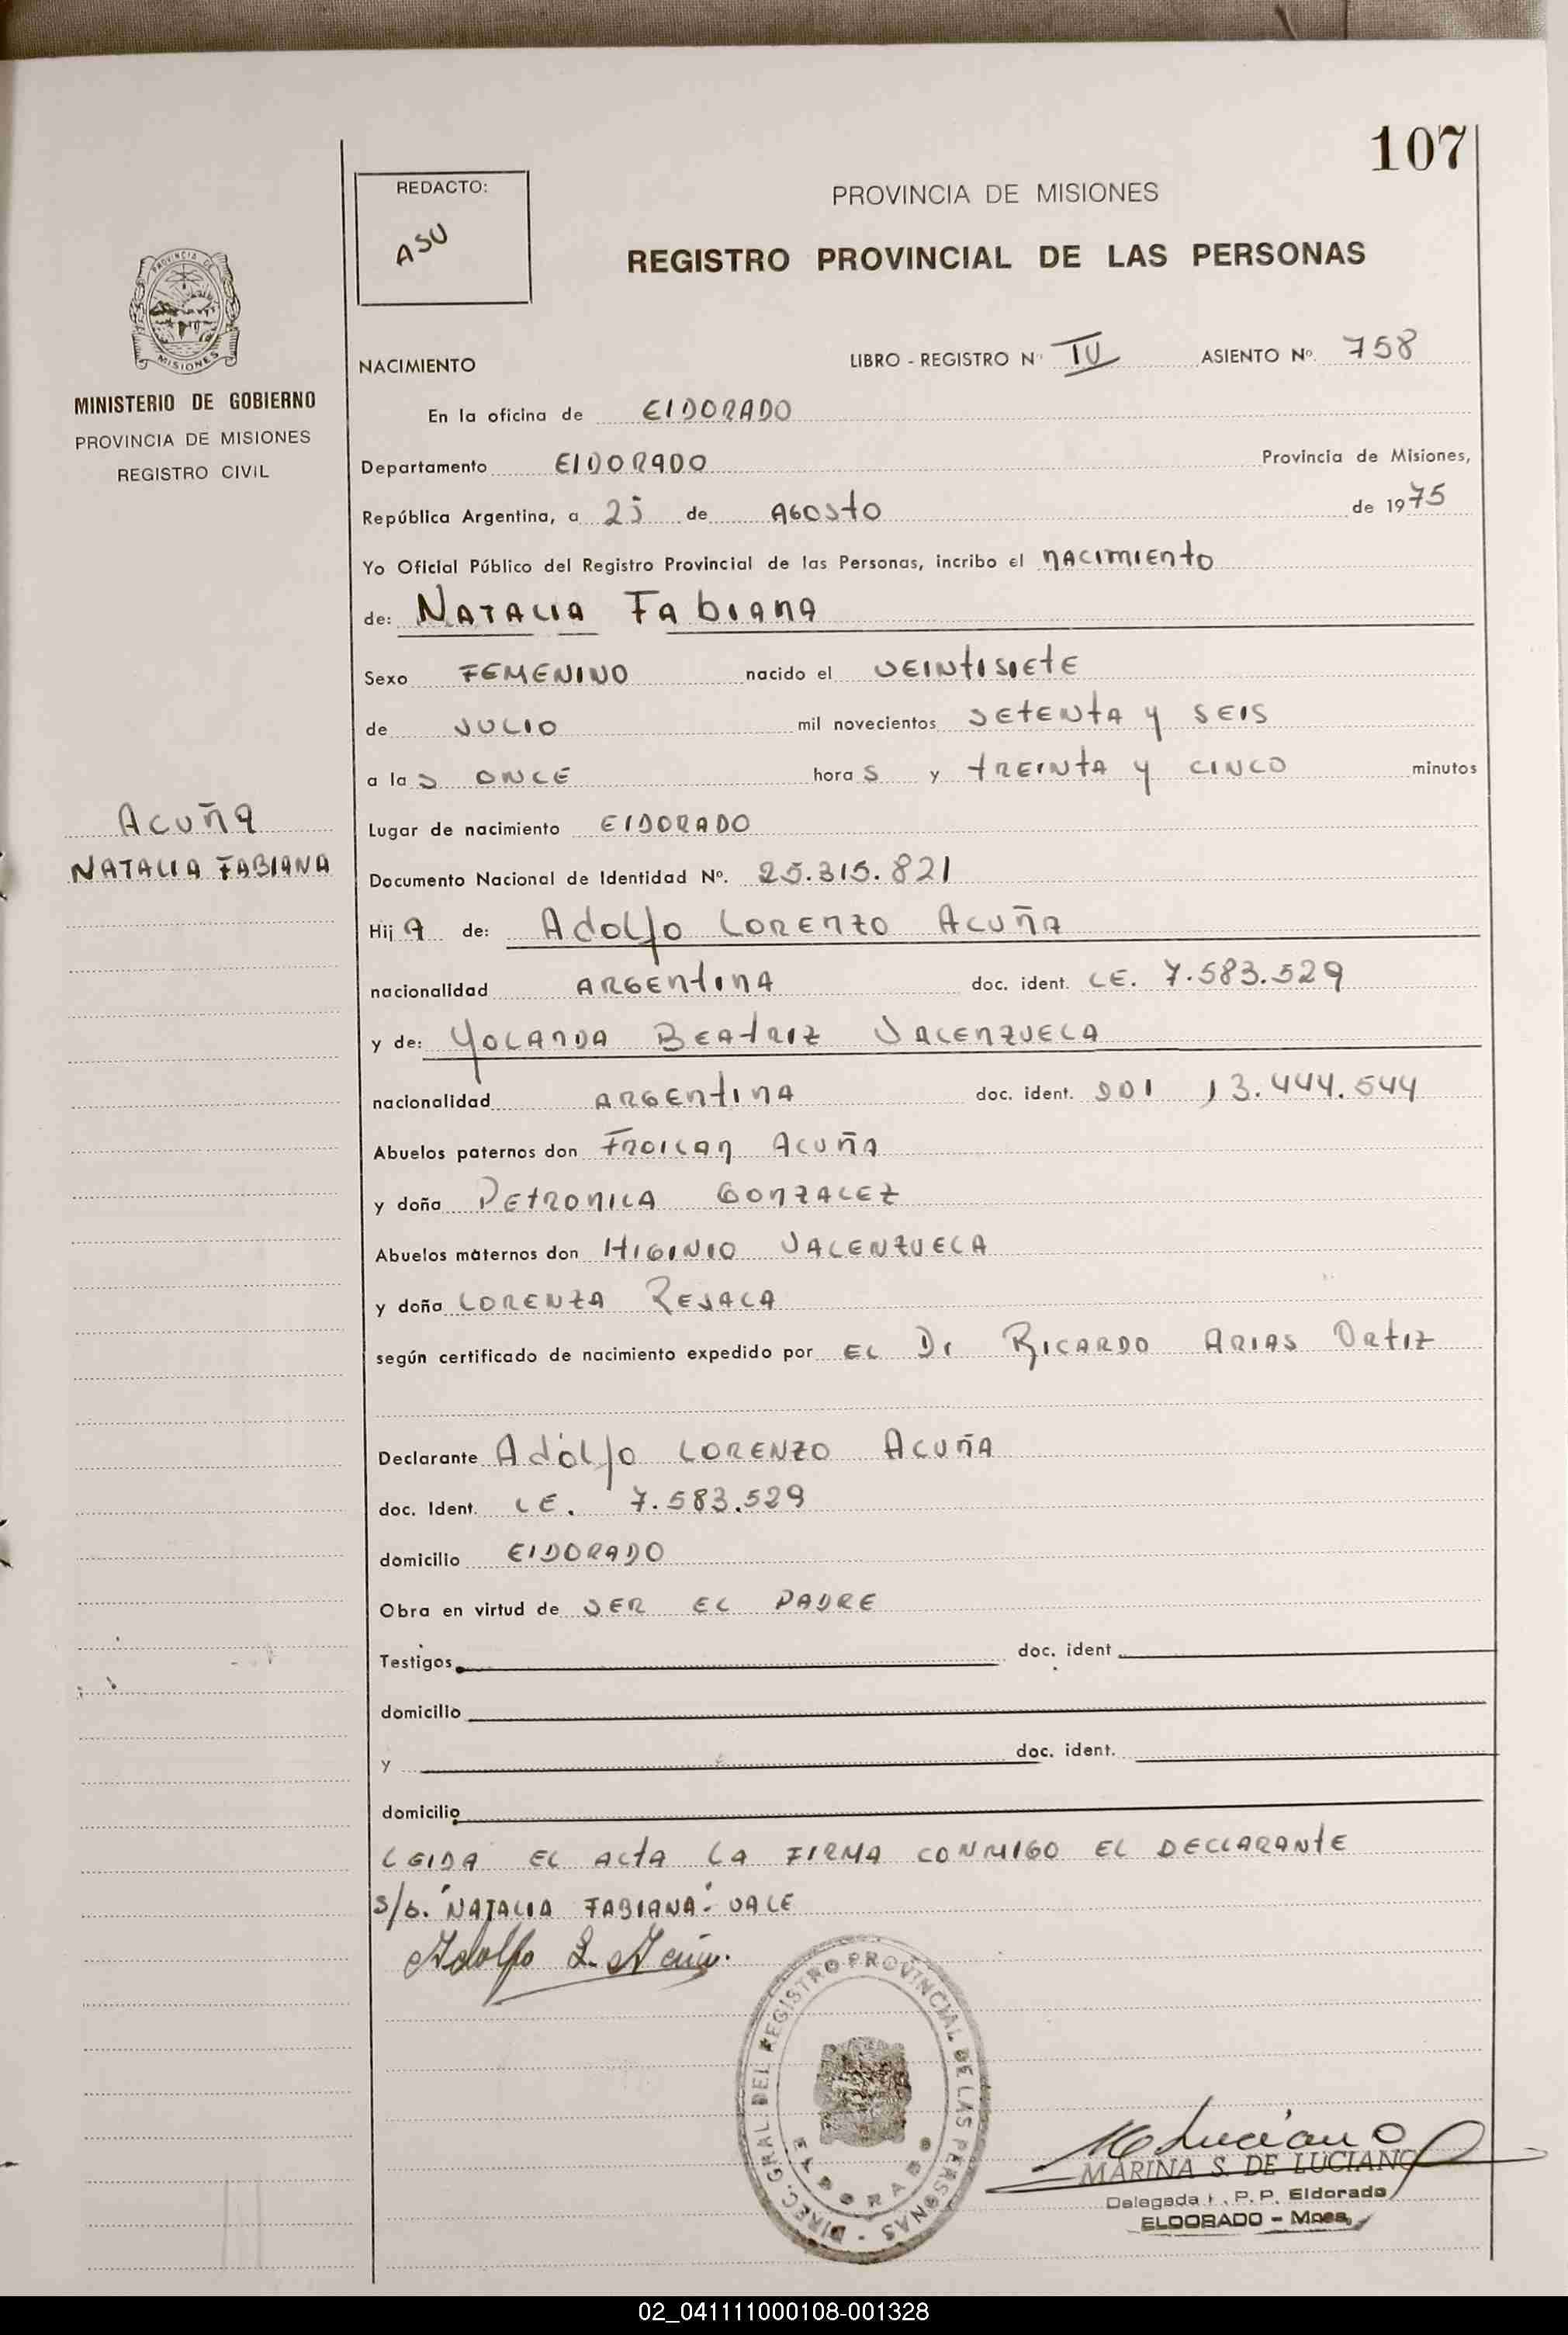 107
REDACTO:
ASU
PROVINCIA DE MISIONES
REGISTRO PROVINCIAL DE LAS PERSONAS
PROVINCIA DE
MISIONES
MINISTERIO DE GOBIERNO
PROVINCIA DE MISIONES
REGISTRO CIVIL
NACIMIENTO LIBRO - REGISTRO Nº IV ASIENTO Nº. 758
En la oficina de ElDORADO
Departamento ElDORADO Provincia de Misiones,
República Argentina, a de AGOSTO de 1975
Yo Oficial Público del Registro Provincial de las Personas, incribo el NACIMIENTO
de: NATALIA FAbIANA
Sexo FEMENINO nacido el VEINTISIETE
de JULIO mil novecientos SETENTA y SEIS
a la S ONCE hora S y TREINTA y CINCO minutos
Acuña
NATALIA FABIANA
Lugar de nacimiento ElDORADO
Documento Nacional de Identidad Nº. 25.315.821
Hij A de: Adolfo LORENZO Acuña
nacionalidad ARGENTINA doc. ident. LE. 7.583.529
y de: YOLANDA BEATRIZ VALENZUELA
nacionalidad ARGENTINA doc. ident. DNI 13.444.544
Abuelos paternos don FROILAN Acuña
y doña PETRONILA GONZALEZ
Abuelos maternos don HIGINIO VALENZUELA
y doña LORENZA
según certificado de nacimiento expedido por EL Dr RICARDO ARIAS ORTIZ
Declarante Adolfo LORENZO Acuña
doc. Ident. LE. 7.583.529
domicilio ElDORADO
Obra en virtud de SER EL PADRE
Testigos doc. ident
domicilio
y doc. ident.
domicilio
LEIDA EL ACTA LA FIRMA CONMIGO EL DECLARANTE
S/b. "NATALIA FABIANA". VALE
Adolfo L. Acuña
DIREC. GRAL. DEL REGISTRO PROVINCIAL DE LAS PERSONAS -
ELDORADO
M Luciano
MARINA S. DE LUCIANO
Delegada P. P. Eldorado
ELDORADO - Mnes.
02_041111000108-001328